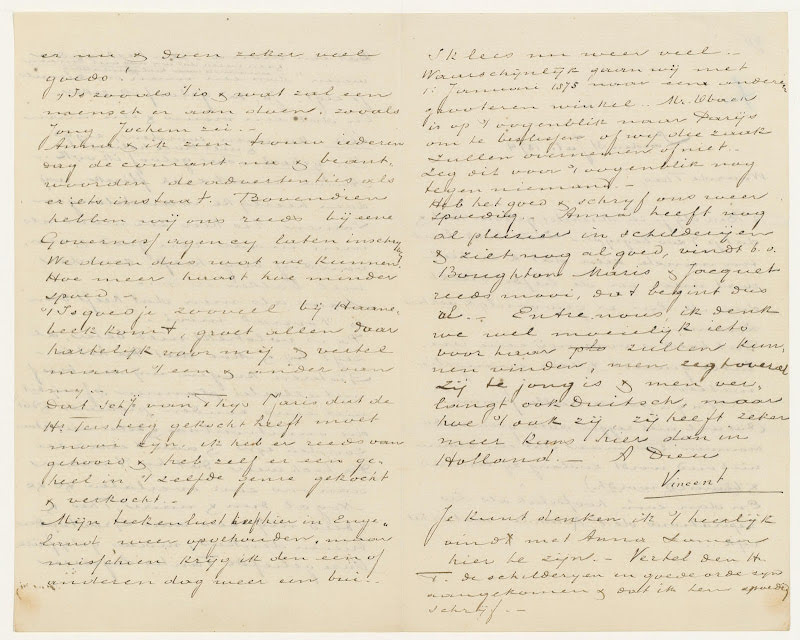 er nu & doen zeker veel
goeds!
't Is zooals 't is & wat zal een
mensch er aan doen, zooals
Jong Jochem zei.-
Anna & ik zien trouw iederen
dag de courant na & beant-
woorden de advertenties als
er iets instaat. Bovendien
hebben wij ons reeds bij eene
Governess agency laten inschrijven
We doen dus wat we kunnen.
Hoe meer haast hoe minder
spoed.-
't Is goed je zooveel bij Haane-
beek komt, groet allen daar
hartelijk voor mij & vertel
maar 't een & ander van
mij.-
Dat Schij van Thijs Maris dat de
Hr Tersteeg gekocht heeft moet
mooi zijn, ik had er reeds van
gehoord & heb zelf er een ge-
heel in 't zelfde genre gekocht
& verkocht.-
Mijn teekenlust is hier in Enge-
land weer opgehouden, maar
misschien krijg ik den een of
anderen dag weer een bui.-
Ik lees nu weer veel.-
Waarschijnlijk gaan wij met
1: Januari 1875 naar een anderen
grooteren winkel. Mr. Obach
is op 't oogenblik naar Parijs
om te beslissen of wij die zaak
zullen overnemen of niet.-
Zeg dit voor 't oogenblik nog
tegen niemand.-
Heb het goed & schrijf ons weer
spoedig. Anna heeft nog
al pleisier in schilderijen
& ziet nog al goed, vindt b.v.
Boughton Maris & Jacquet
reeds mooi, dat begint dus
al.- Entre nous ik denk
we wel moeielijk iets
voor haar zullen kun-
nen vinden, men zegt overal
zij te jong is & men ver-
langt ook Duitsch, maar
hoe 't ook zij zij heeft zeker
meer kans hier dan in
Holland.- A Dieu
Vincent
Je kunt denken ik 't heerlijk
vindt met Anna samen
hier te zijn.- Vertel den H.
T. de schilderijen in goede orde zijn
aangekomen & dat ik hem spoedig
schrijf.-